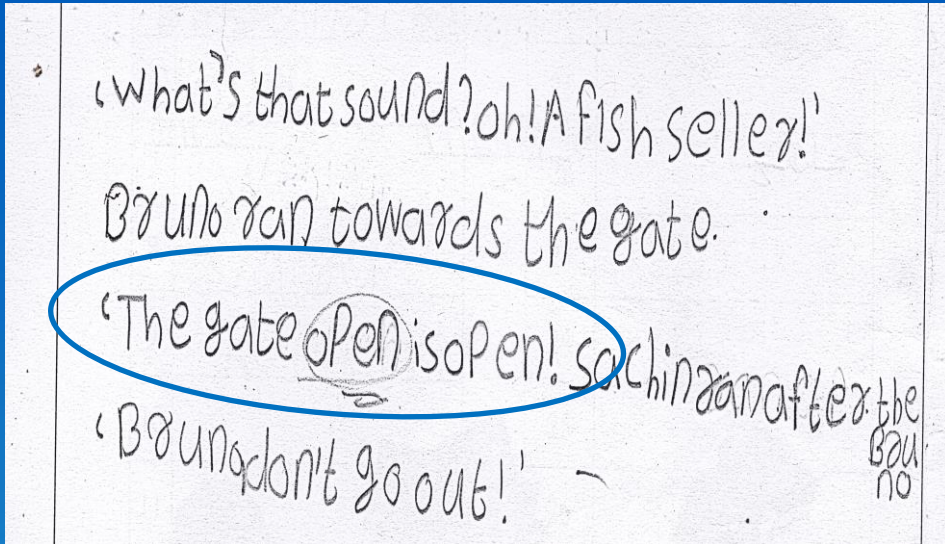 ‘What's that sound? oh! A fish seller!'
Bruno ran towards the gate.
‘The gate open is open! Sachin ran after the
Bru
no
‘Bruno don't go out!'